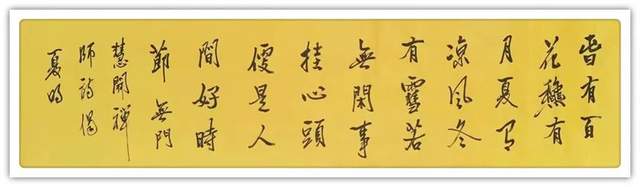 旾有百
花龝有
月夏有
凉風冬
有雪若
無閑事
挂心頭
便是人
間好時
節 無門
慧開禪
師詩偈
夏